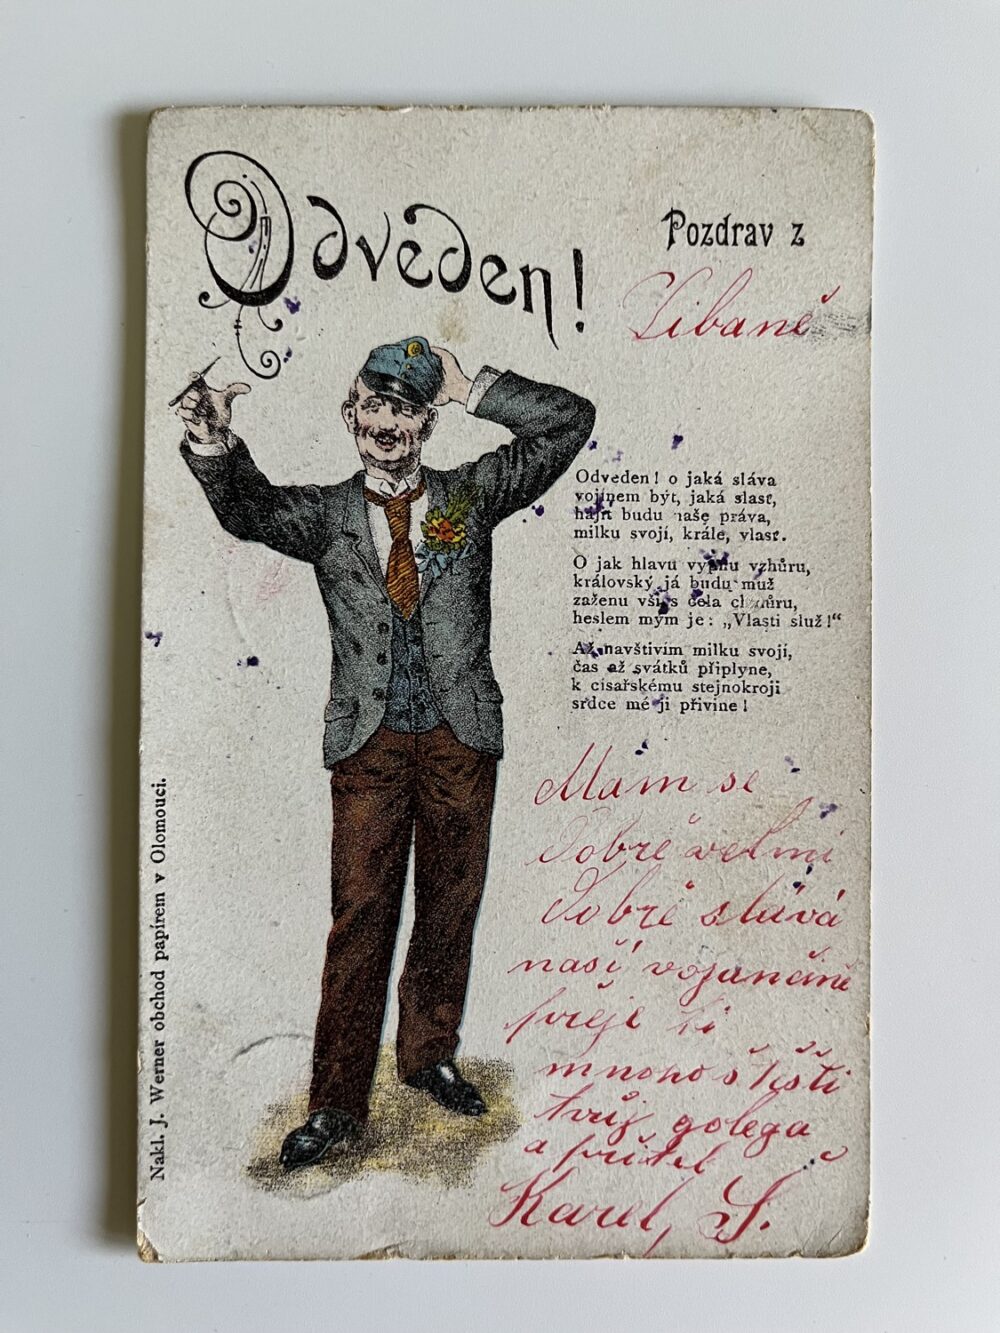 Odveden!
Pozdrav z
Libaně
Odveden! o jaká sláva
vojínem být, jaká slast,
hájit budu naše práva,
milku svojí, krále, vlast.
O jak hlavu vypnu vzhůru,
královský já budu muž
zaženu vší s čela chmůru,
heslem mým je: „Vlasti služ!“
Až navštívím milku svojí,
čas až svátků připlyne,
k císařskému stejnokroji
srdce mé ji přivine!
Mám se
dobře velmi
dobře sláva
naší
přeje ti
mnoho štěstí
tvůj golega
a přítel
Karel, Š.
Nakl. J. Werner obchod papírem v Olomouci.